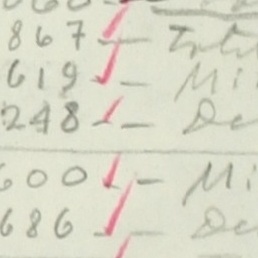 867 -
619 - Mi
248 - De
600 - Mi
686 - De